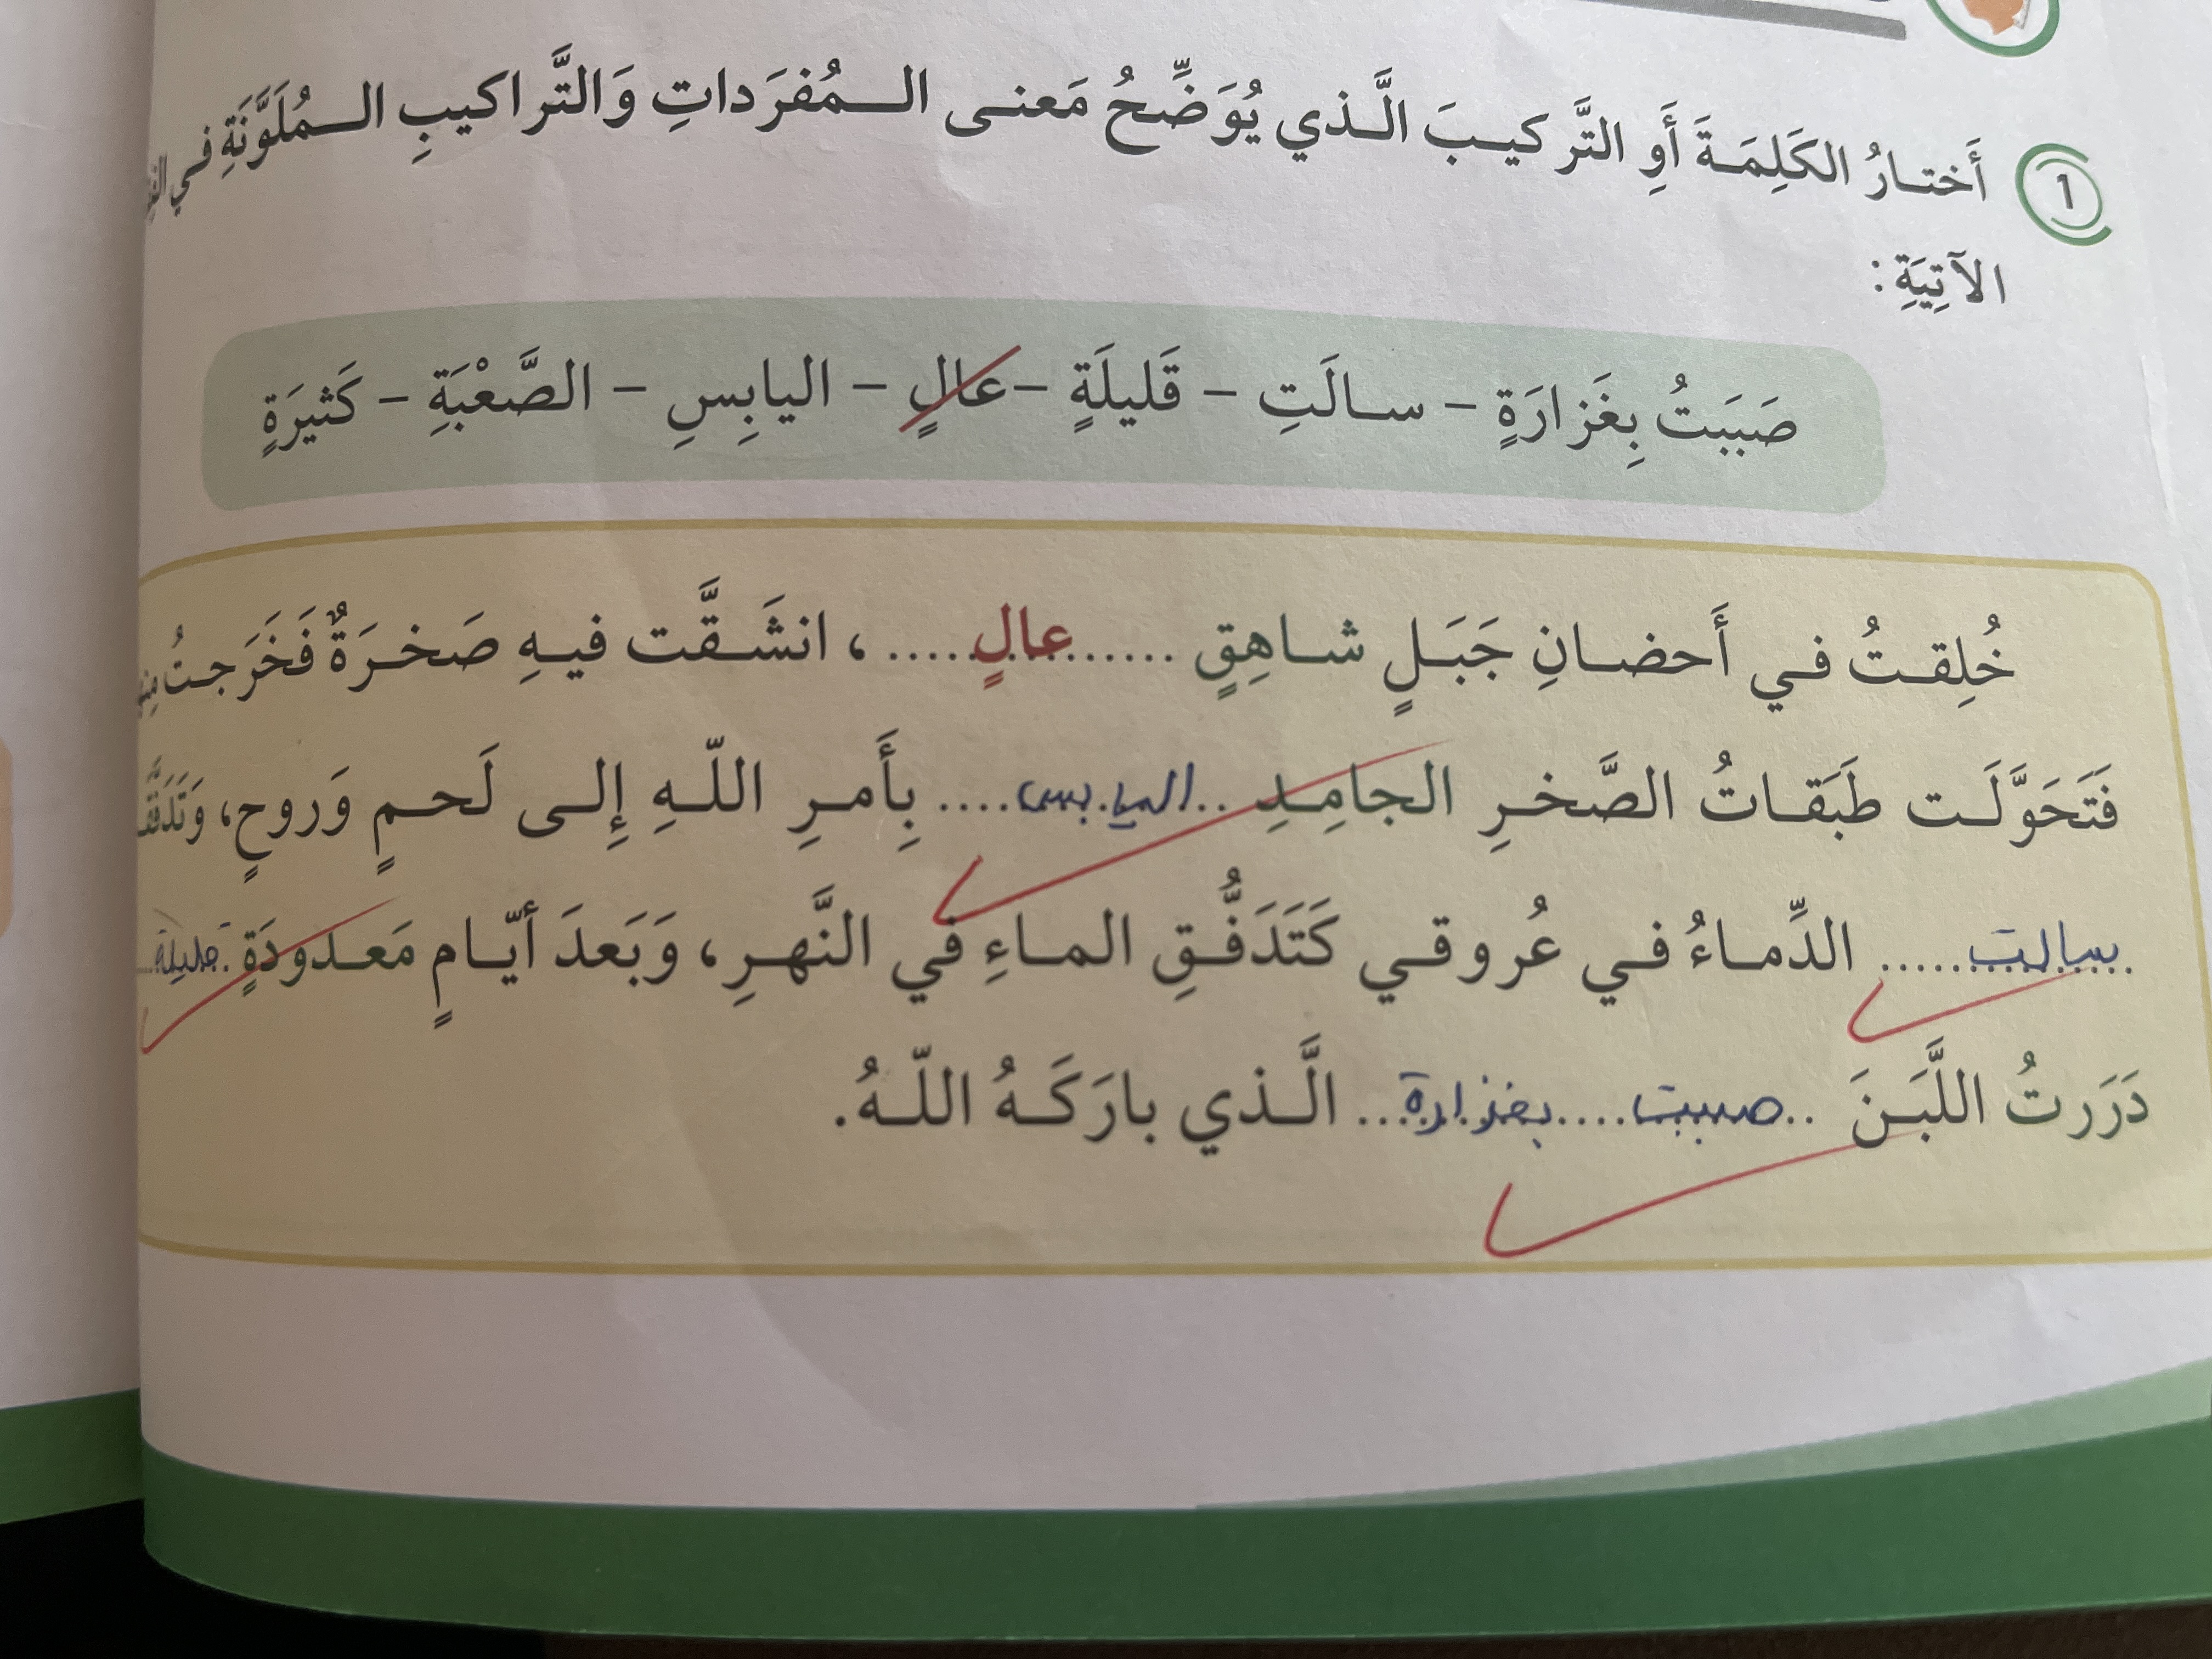 ١
أَختارُ الكَلِمَةَ أَوِ التَّركيبَ الَّذي يُوَضِّحُ مَعنى المُفرَداتِ وَالتَّراكيبِ المُلَوَّنَةِ في
الآتِيَةِ:
صَبَبَتُ بِغَزارَةٍ – سالَتِ – قَليلَةٍ – عالٍ – اليابِسِ – الصَّعْبَةِ – كَثيرَةٍ
خُلِقتُ في أَحضانِ جَبَلٍ شاهِقٍ ............عالٍ......، انشَقَّت فيهِ صَخرَةٌ فَخَرَجتُ
فَتَحَوَّلَت طَبَقاتُ الصَّخرِ الجامِدِ ..اليابس.... بِأَمرِ اللّهِ إِلى لَحمٍ وَروحٍ،
سالت...... الدِّماءُ في عُروقي كَتَدَفُّقِ الماءِ في النَّهرِ، وَبَعدَ أيّامٍ مَعدودَةٍ .قليلة..
دَرَرتُ اللَّبَنَ ..صببت....بغزارة... الَّذي بارَكَهُ اللّهُ.